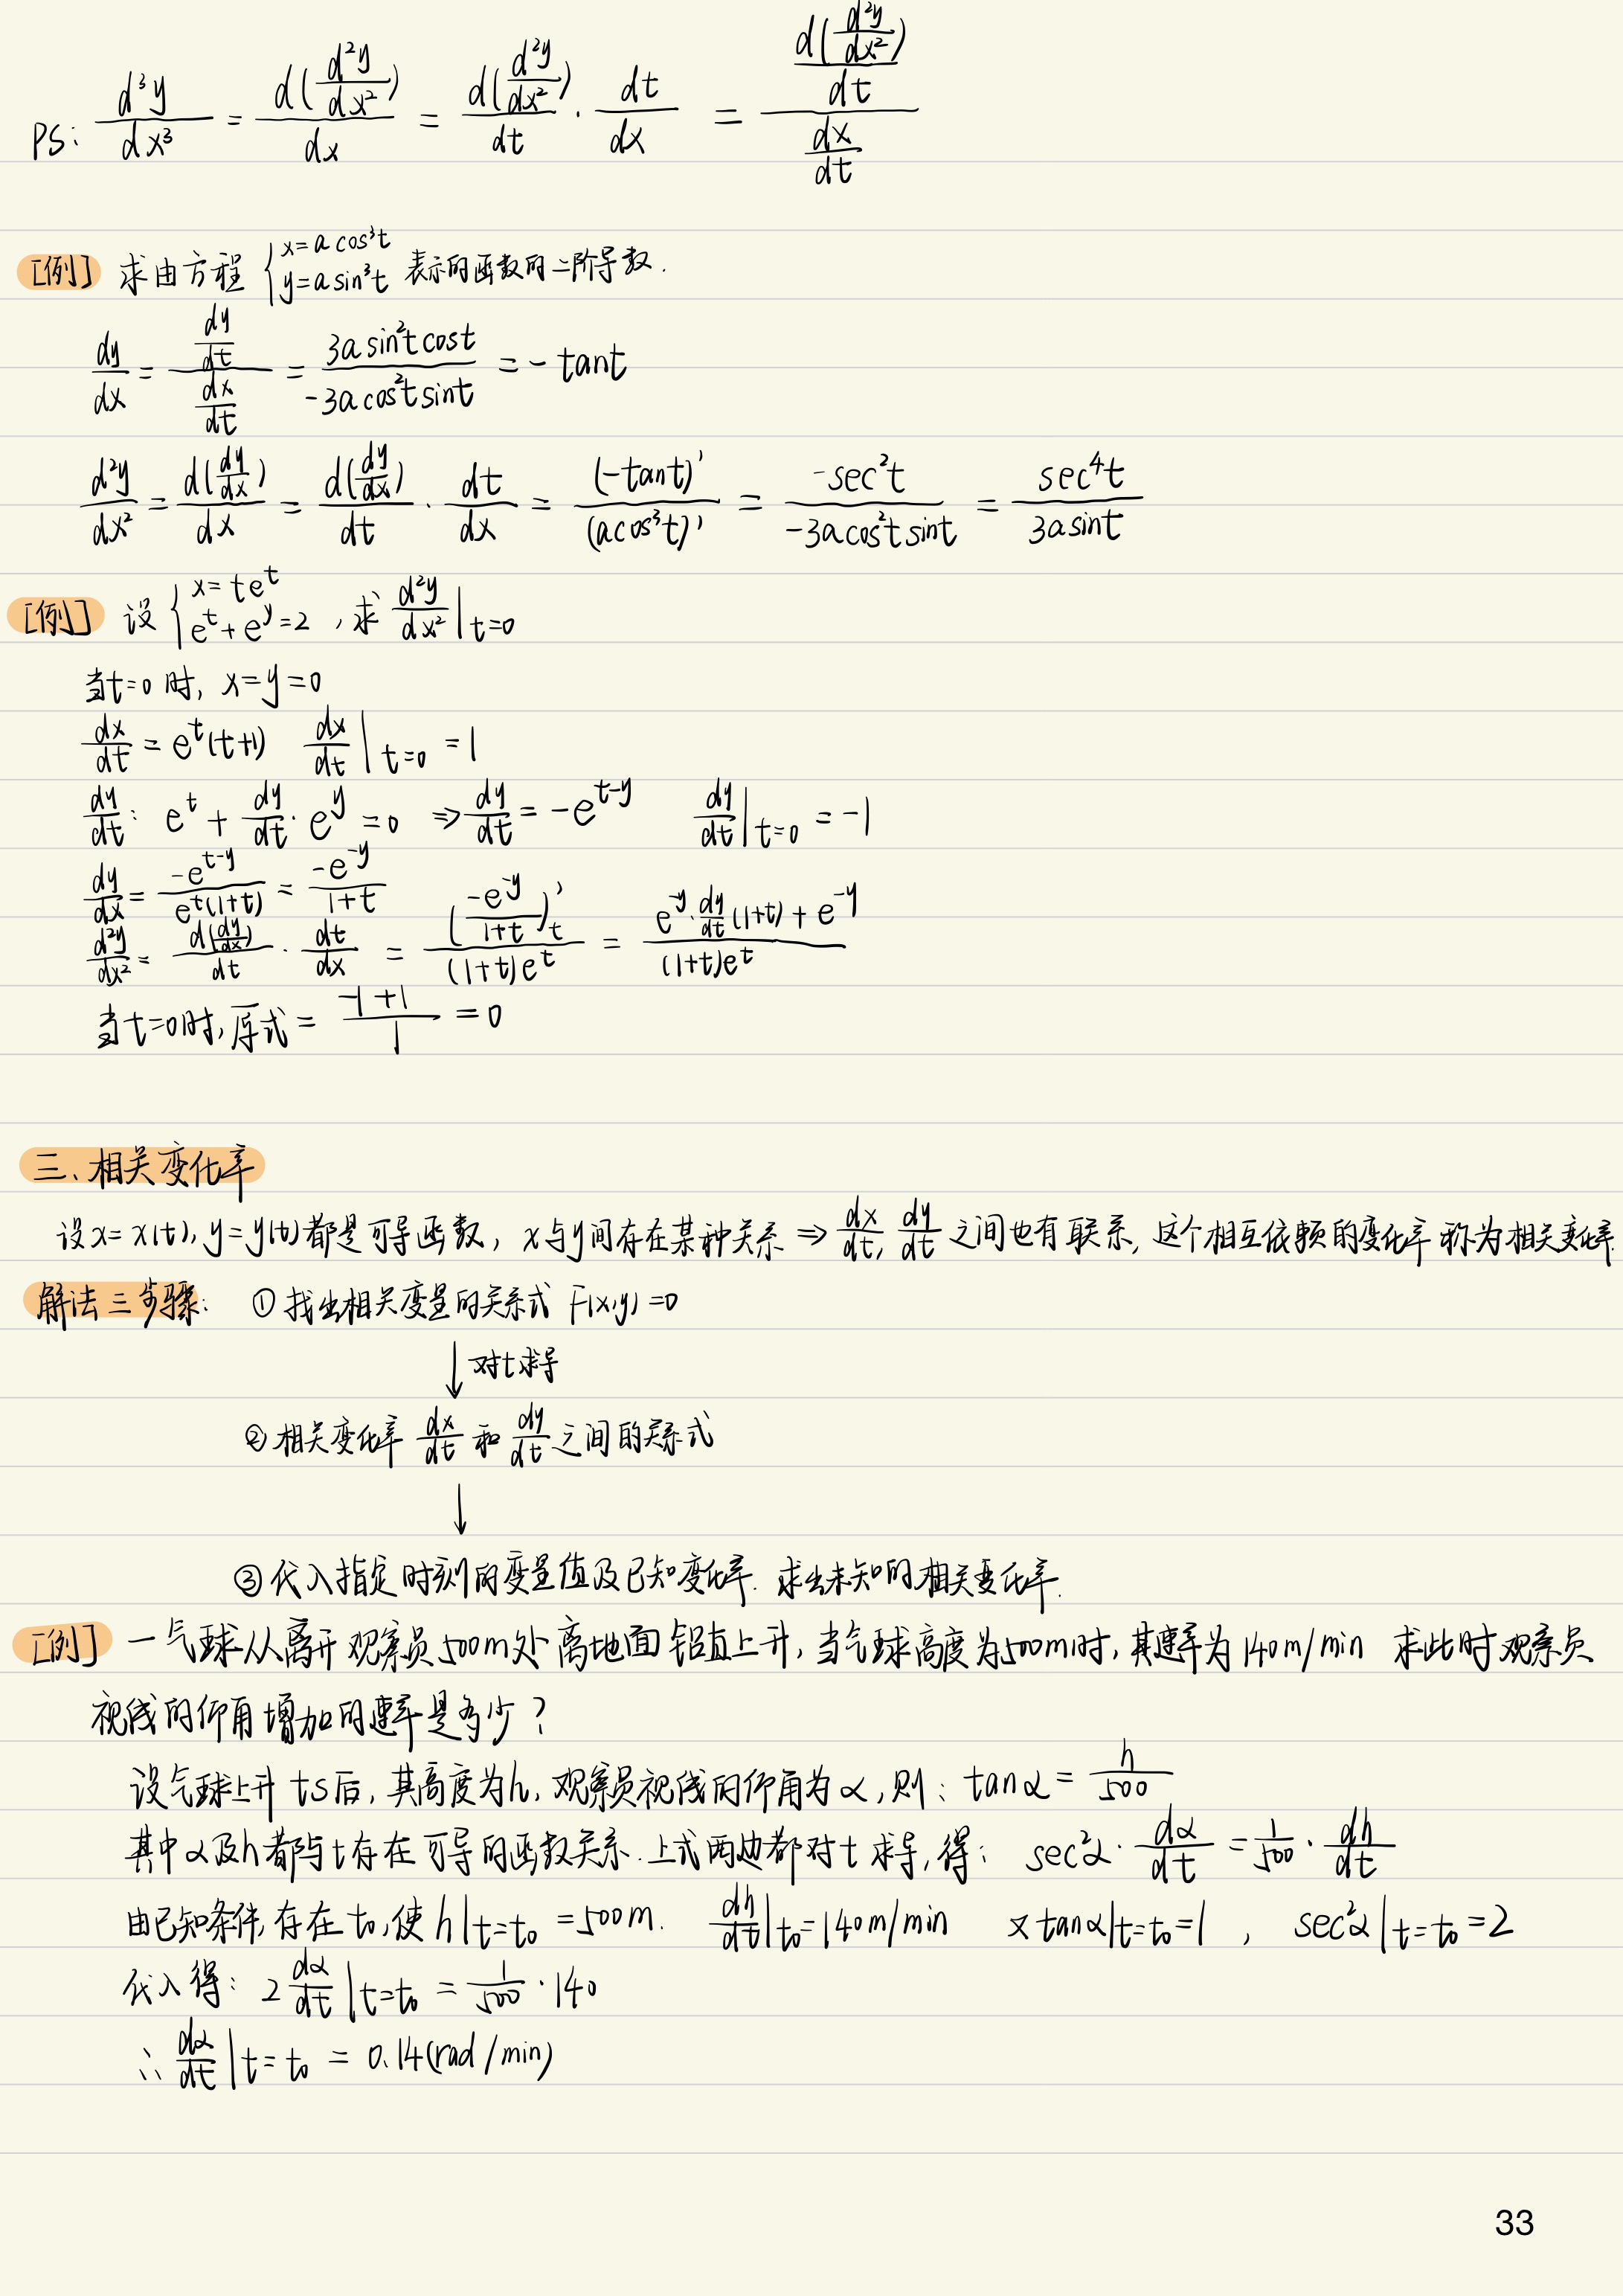 PS: d³y/dx³ = d(d²y/dx²)/dx = d(d²y/dx²)/dt · dt/dx = (d(d²y/dx²)/dt)/(dx/dt)
[例] 求由方程 { x=acos³t y=asin³t 表示的函数的二阶导数.
dy/dx = (dy/dt)/(dx/dt) = 3asin²tcost/(-3acos²tsint) = -tant
d²y/dx² = d(dy/dx)/dx = d(dy/dx)/dt · dt/dx = (-tant)'/(acos³t)' = -sec²t/(-3acos²tsint) = sec⁴t/(3asint)
[例] 设 { x=te^t e^t+e^y=2 , 求 d²y/dx²|t=0
当t=0时, x=y=0
dx/dt = e^t(t+1) dx/dt|t=0 =1
dy/dt: e^t + dy/dt · e^y =0 ⇒ dy/dt = -e^(t-y) dy/dt|t=0 = -1
dy/dx = -e^(t-y)/(e^t(1+t)) = -e^(-y)/(1+t)
d²y/dx² = d(dy/dx)/dt · dt/dx = (-e^(-y)/(1+t))'t/((1+t)e^t) = (e^(-y)·dy/dt(1+t)+e^(-y))/((1+t)e^t)
当t=0时, 原式 = (-1+1)/1 = 0
三、相关变化率
设x=x(t), y=y(t)都是可导函数, x与y间存在某种关系 ⇒ dx/dt, dy/dt 之间也有联系, 这个相互依赖的变化率称为相关变化率.
解法三步骤: ① 找出相关变量的关系式 F(x,y)=0
↓ 对t求导
② 相关变化率 dx/dt 和 dy/dt 之间的关系式
↓
③ 代入指定时刻的变量值及已知变化率. 求出未知的相关变化率.
[例] 一气球从离开观察员500m处离地面铅直上升, 当气球高度为500m时, 其速率为140m/min 求此时观察员
视线的仰角增加的速率是多少?
设气球上升 ts后, 其高度为h, 观察员视线的仰角为α, 则: tanα = h/500
其中α及h都与t存在可导的函数关系. 上式两边都对t求导, 得: sec²α · dα/dt = 1/500 · dh/dt
由已知条件, 存在t₀, 使h|t=t₀ =500m. dh/dt|t₀=140m/min 又tanα|t=t₀=1 , sec²α|t=t₀=2
代入得: 2 dα/dt|t=t₀ = 1/500 · 140
∴ dα/dt|t=t₀ = 0.14(rad/min)
33